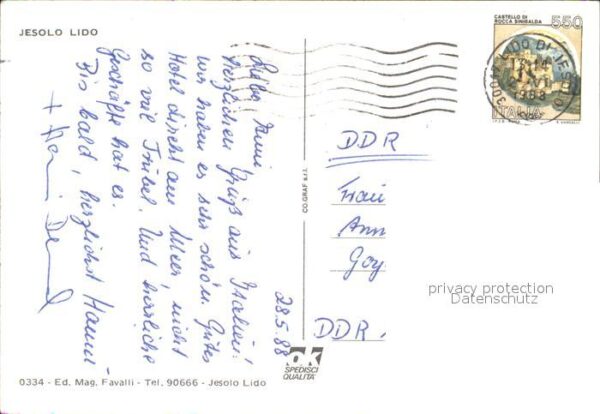 JESOLO LIDO
Herzlichen Gruß aus Italien!
wir haben es sehr schön. Gutes
Hotel direkt am Meer, nicht
so viel Trubel. Und herrliche
Geschäfte hat es.
Bis bald, herzlichst Hanni
+
28.5.88
CO.GRAF s.r.l.
ok
SPEDISCI
QUALITÀ
CASTELLO DI
ROCCA SINIBALDA
550
ITALIA
LIDO DI JESOLO
DDR
Frau
Ann
Goy
DDR.
privacy protection
Datenschutz
0334 - Ed. Mag. Favalli - Tel. 90666 - Jesolo Lido